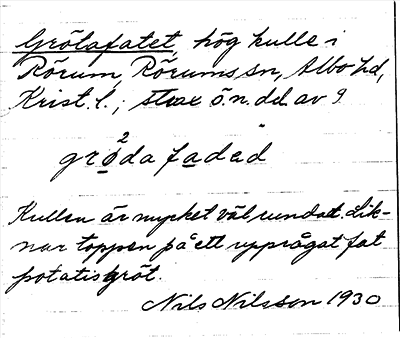 Grötafatet, hög kulle i
Rörum, Rörums sn, Albo hd,
Krist. l.; strax ö.n. del av 9
grö²da fadad
Kullen är mycket väl rundat. Lik-
nar toppen på ett upprågat fat
potatisgröt.
Nils Nilsson 1930